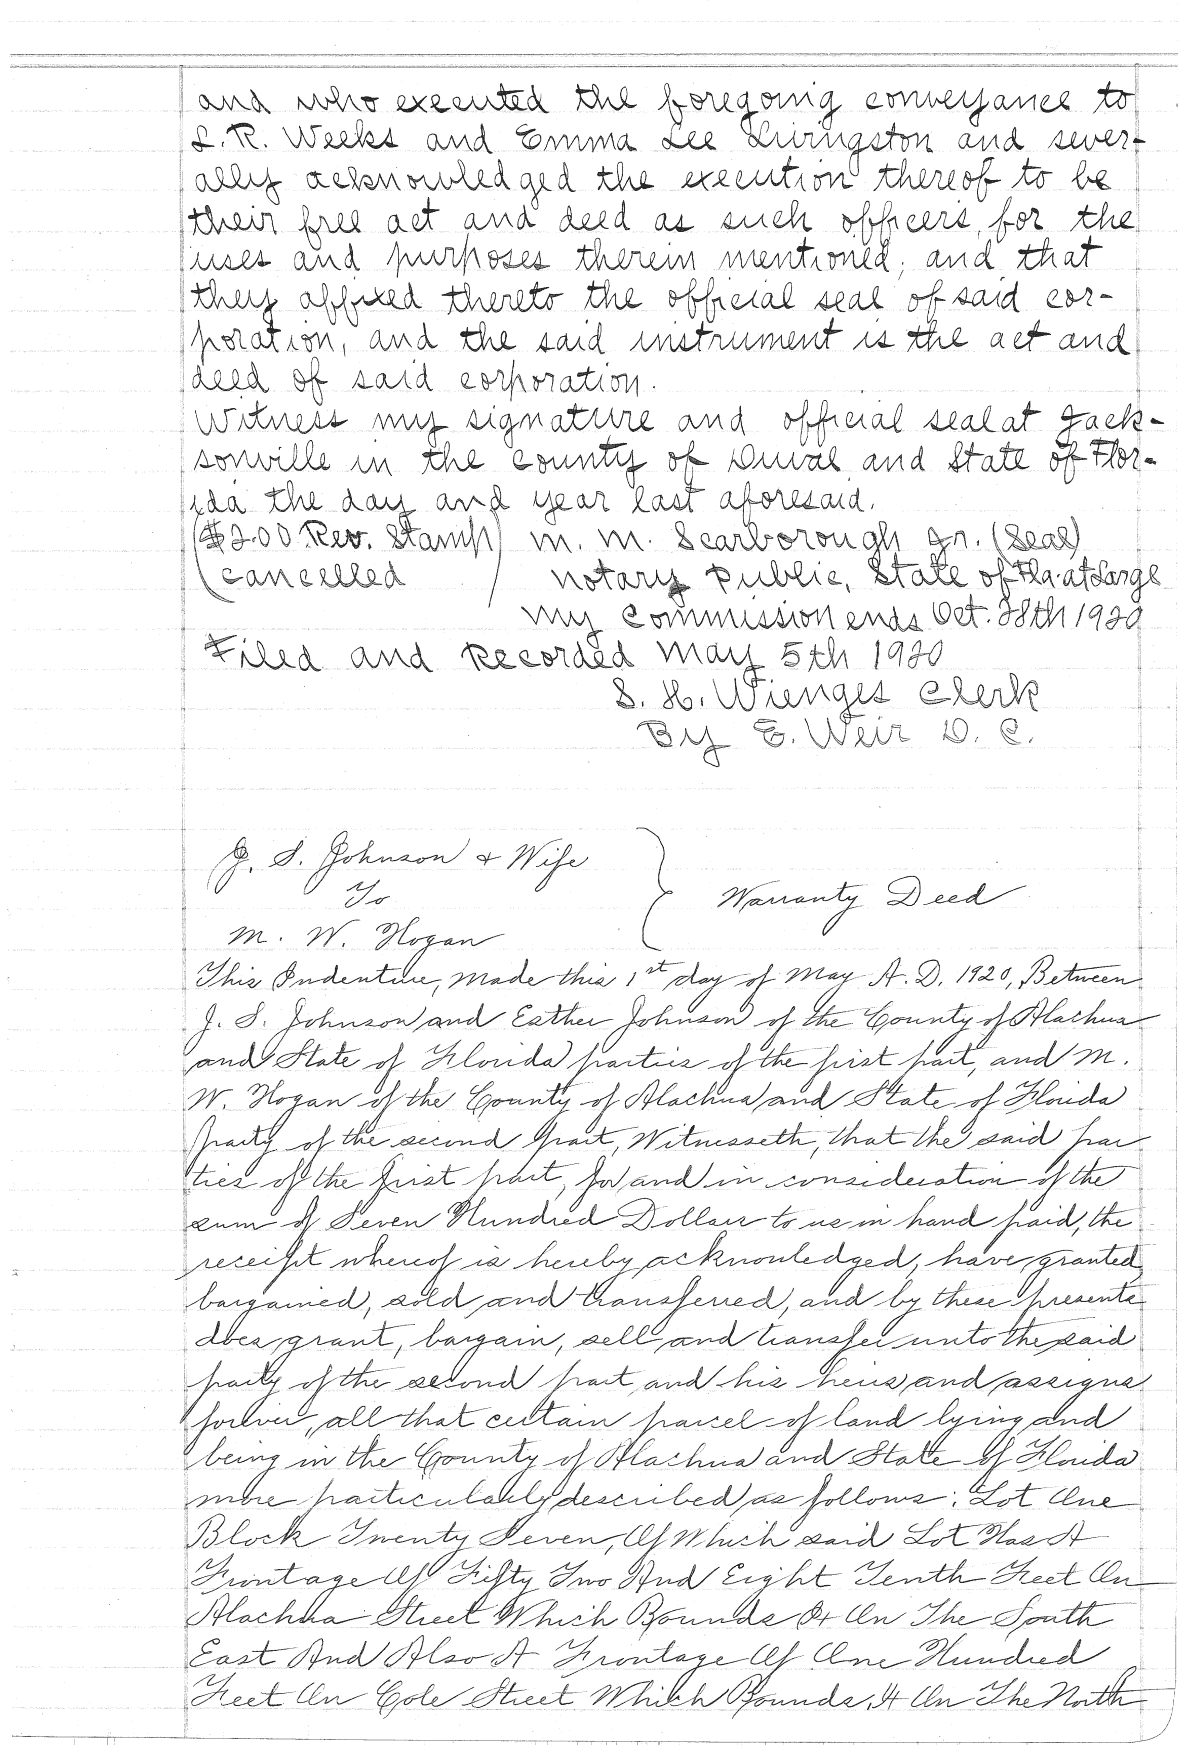 and who executed the foregoing conveyance to
L. R. Weeks and Emma Lee Livingston and sever-
ally acknowledged the execution thereof to be
their free act and deed as such officers, for the
uses and purposes therein mentioned; and that
they affixed thereto the official seal of said cor-
poration, and the said instrument is the act and
deed of said corporation.
Witness my signature and official seal at Jack-
sonville in the county of Duval and State of Flor-
ida the day and year last aforesaid.
($2.00 Rev. Stamp) M. M. Scarborough Jr. (Seal)
(cancelled ) Notary Public, State of Fla. at Large
My Commission ends Oct. 28th 1920
Filed and Recorded May 5th 1920
S. H. Wienges Clerk
By E. Weir D. C.
J. S. Johnson & Wife
To
Warranty Deed
M. W. Hogan
This Indenture, Made this 1st day of May A. D. 1920, Between
J. S. Johnson and Esther Johnson of the County of Alachua
and State of Florida parties of the first part, and M.
W. Hogan of the County of Alachua and State of Florida
party of the second part, Witnesseth, that the said par
ties of the first part, for and in consideration of the
sum of Seven Hundred Dollars to us in hand paid, the
receipt whereof is hereby acknowledged, have granted
bargained, sold and transferred, and by these presents
does grant, bargain, sell and transfer unto the said
party of the second part and his heirs and assigns
forever, all that certain parcel of land lying and
being in the County of Alachua and State of Florida
more particularly described as follows: Lot One
Block Twenty Seven, Of Which said Lot Has A
Frontage Of Fifty Two And Eight Tenth Feet On
Alachua Street Which Bounds It On The South
East And Also A Frontage Of One Hundred
Feet On Cole Street Which Bounds It On The North